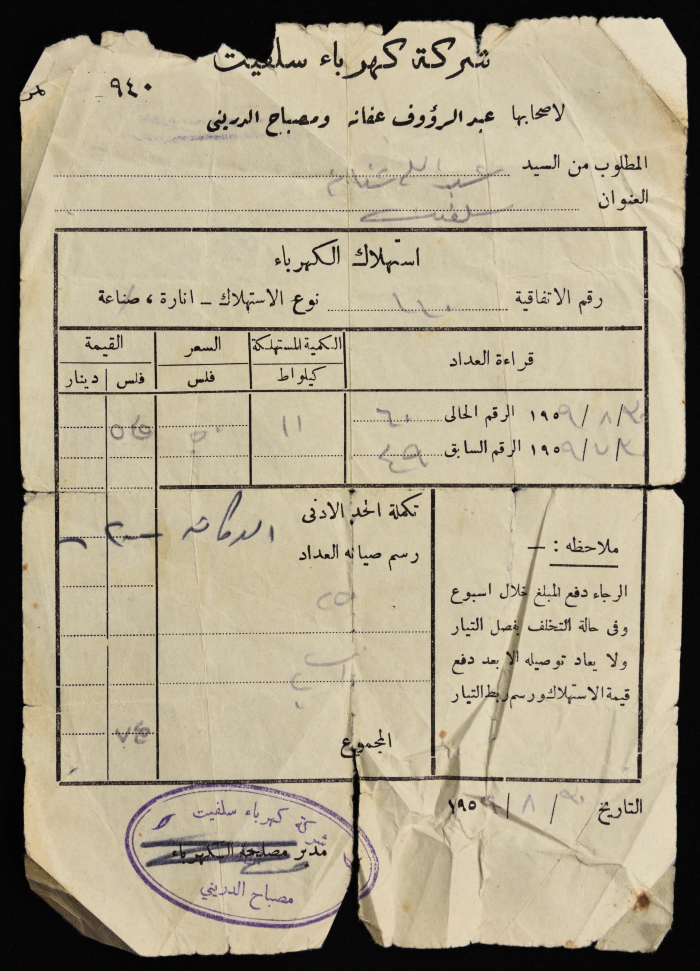 شركة كهرباء سلفيت
٩٤٠
لاصحابها عبد الرؤوف عفانه ومصباح الدريني
المطلوب من السيد عبد الله
العنوان سلفيت
استهلاك الكهرباء
رقم الاتفاقية ١١٠ نوع الاستهلاك - انارة ، صناعة
قراءة العداد الكمية المستهلكة السعر القيمة
كيلواط فلس فلس دينار
١٩٥٩/٨/ الرقم الحالى ٦٠ ١١ ٥٠
١٩٥٩/٧/ الرقم السابق ٤٩
تكملة الحد الادنى
رسم صيانه العداد
المجموع
ملاحظه : —
الرجاء دفع المبلغ خلال اسبوع
وفى حالة التخلف يفصل التيار
ولا يعاد توصيله الا بعد دفع
قيمة الاستهلاك ورسم ربط التيار
التاريخ / ٨ / ١٩٥٩
شركة كهرباء سلفيت
مدير مصلحة الكهرباء
مصباح الدريني